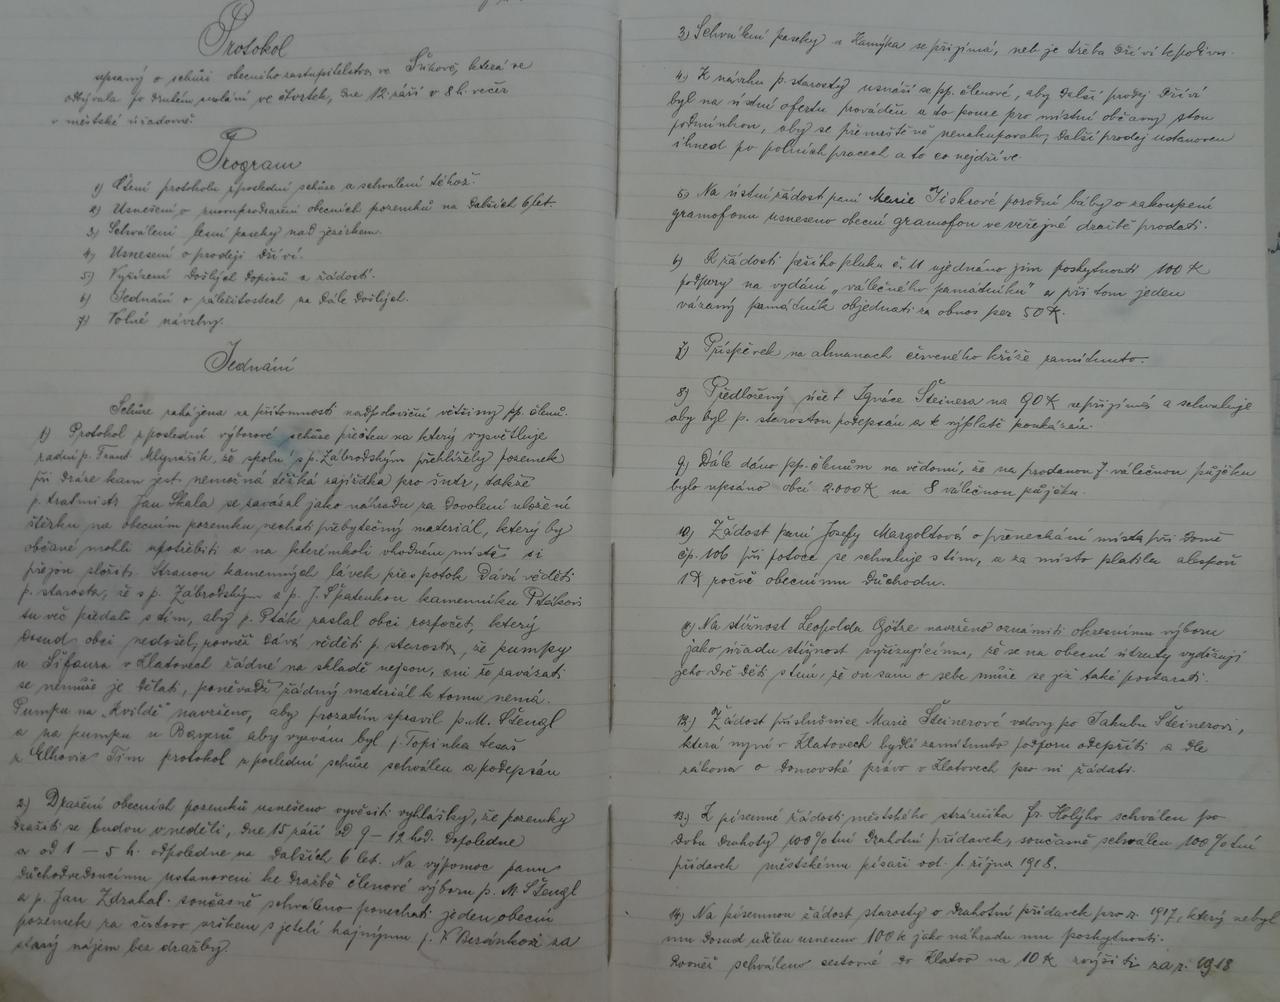 Protokol
sepsaný o schůzi obecního zastupitelstva ve Švihově, která se
odbývala po druhém svolání ve čtvrtek, dne 12. září v 8 h. večer
v městské úřadovně
Program
1) Čtení protokolu z poslední schůze a schválení téhož.
2) Usnešení o znovuprodražení obecních pozemků na dalších 6 let.
3) Schválení lesní paseky nad jezírkem.
4) Usnesení o prodeji dříví.
5) Vyřízení došlých dopisů a žádostí.
6) Jednání o záležitostech na dále došlých.
7) Volné návrhy.
Jednání
Schůze zahájena za přítomnosti nadpoloviční většiny pp. členů.
1) Protokol z poslední výborové schůze přečten na který vysvětluje
radní p. Frant. Mlynařík, že spolu s p. Zábrodským přehlíželi pozemek
při dráze kam jest nemožná těžká zajížďka pro šutr, takže
p. tratmistr Jan Skala se zavázal jako náhradu za dovolení uložení
štěrku na obecním pozemku nechati přebytečný materiál, který by
občané mohli upotřebiti a na kterémkoli vhodném místě si
jej složit. Stranou kamenných lávek přes potok dává věděti
p. starosta, že s p. Zábrodským a p. J. Špatenkou kameníku Ptákovi
tu věc předali s tím, aby p. Pták zaslal obci rozpočet, který
dosud obci nedošel, rovněž dává věděti p. starosta, že pumpy
u Šifaura v Klatovech žádné na skladě nejsou, ani že zavázati
se nemůže je dělati, poněvadž žádný materiál k tomu nemá.
Pumpu na „Kvildě" navrženo, aby prozatím spravil p. M. Štengl
a na pumpu u Bayerů aby vyzván byl p. Topinka tesař
z Elhovic. Tím protokol z poslední schůze schválen a podepsán
2) Dražení obecních pozemků usnešeno vyvěsiti vyhlášky, že pozemky
dražiti se budou v neděli, dne 15 září od 9 – 12 hod. dopoledne
a od 1 – 5 h. odpoledne na dalších 6 let. Na výpomoc panu
důchodvedoucímu ustanoveni ke dražbě členové výboru p. M. Štengl
a p. Jan Zdrahal. současně schváleno ponechati jeden obecní
pozemek za čistou vrškem s jetelí hajnýmu p. K. Beránkovi za
starý nájem bez dražby.
3) Schválení paseky u Kamýka se přijímá, neb je třeba dříví k palivu.
4) K návrhu p. starosty usnáší se pp. členové, aby další prodej dříví
byl na ústní ofertu prováděn a to pouze pro místní občany s tou
podmínkou, aby se přemrštěně nenakupovalo, další prodej ustanoven
ihned po polních pracech a to co nejdříve.
5) Na ústní žádost paní Marie Jiskrové porodní báby o zakoupení
gramofonu usneseno obecní gramofon ve veřejné dražbě prodati.
6) K žádosti pěšího pluku č. 11 ujednáno jim poskytnouti 100 K
podpory na vydání „válečného památníku" a při tom jeden
vázaný památník objednati za obnos per 50 K.
7) Příspěvek na almanach červeného kříže zamítnuto.
8) Předložený účet Ignáce Šteinera na 90 K se přijímá a schvaluje
aby byl p. starostou podepsán a k výplatě poukázán.
9) Dále dáno pp. členům na vědomí, že na protanou 7 válečnou půjčku
bylo upsáno obcí 2.000 K na 8 válečnou půjčku.
10) Žádost paní Josefy Margoldtové o přenechání místa při domě
čp. 106 při potoce se schvaluje s tím, a za místo platila alespoň
1 K ročně obecnímu důchodu.
11) Na stížnost Leopolda Götze navrženo oznámiti okresnímu výboru
jako úřadu stížnost vyřizujícímu, že se na obecní útraty vydržují
jeho dvě děti s tím, že on sám o sebe může se již také postarati.
12) Žádost příslušnice Marie Šteinerové vdovy po Jakubu Šteinerovi,
která nyní v Klatovech bydlí zamítnuto podporu odepříti a dle
zákona o domovské právo v Klatovech pro ni žádati.
13) K písemné žádosti městského strážníka Fr. Holýho schválen po
dobu drahoty 100% tní drahotní přídavek, současně schválen 100% tní
přídavek městskému písaři od 1. října 1918.
14) Na písemnou žádost starosty o drahotní přídavek pro r. 1917, který nebyl
mu dosud udělen usneseno 100 K jako náhradu mu poskytnouti.
Rovněž schváleno cestovné do Klatov na 10 K zvýšiti za r. 1918